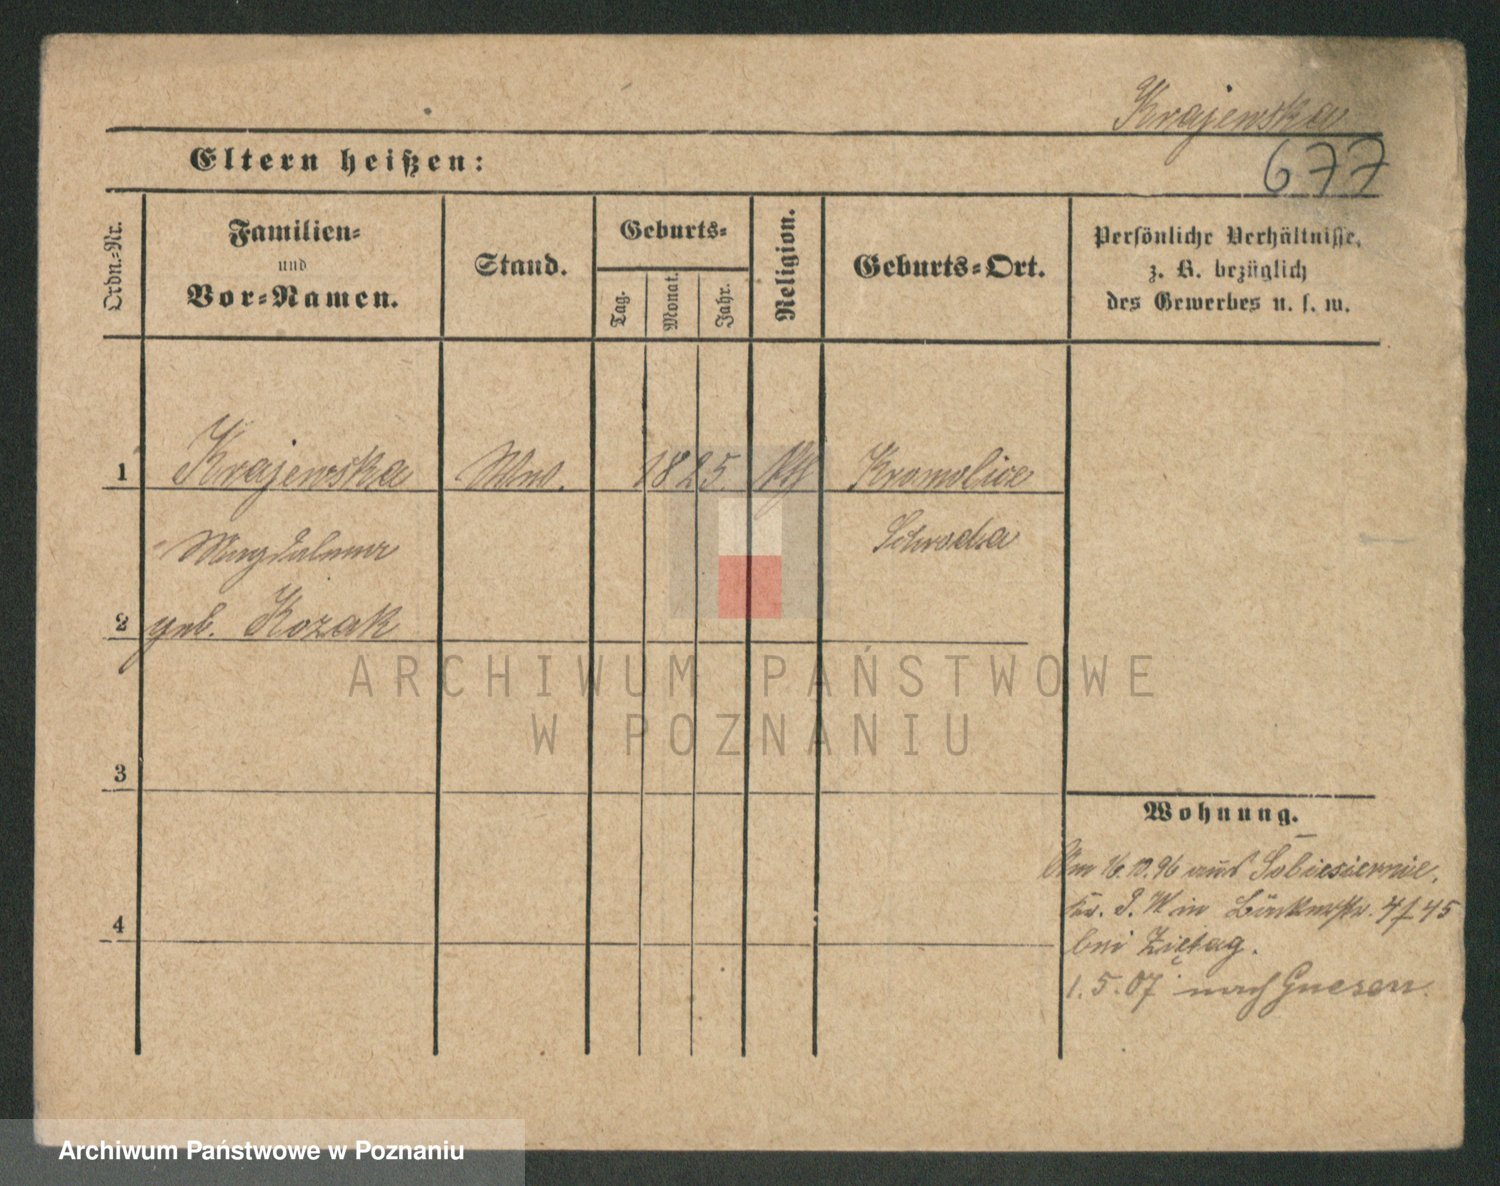 Krajewska
Eltern heißen:
677
Ordn.-Nr.
Familien-
und
Vor-Namen.
Stand.
Geburts-
Tag.
Monat.
Jahr.
Religion.
Geburts-Ort.
Persönliche Verhältnisse,
z. B. bezüglich
des Gewerbes u. s. w.
1 Krajewska Ww. 1825 Kromolice
Magdalena Schroda
2 geb. Kozak
ARCHIWUM PAŃSTWOWE
W POZNANIU
3
Wohnung.
Am 16.10.96 aus Sobiesiernie,
Kr. P. W in 45
4
bei Ziętag.
1.5.07 nach Gnesen.
Archiwum Państwowe w Poznaniu